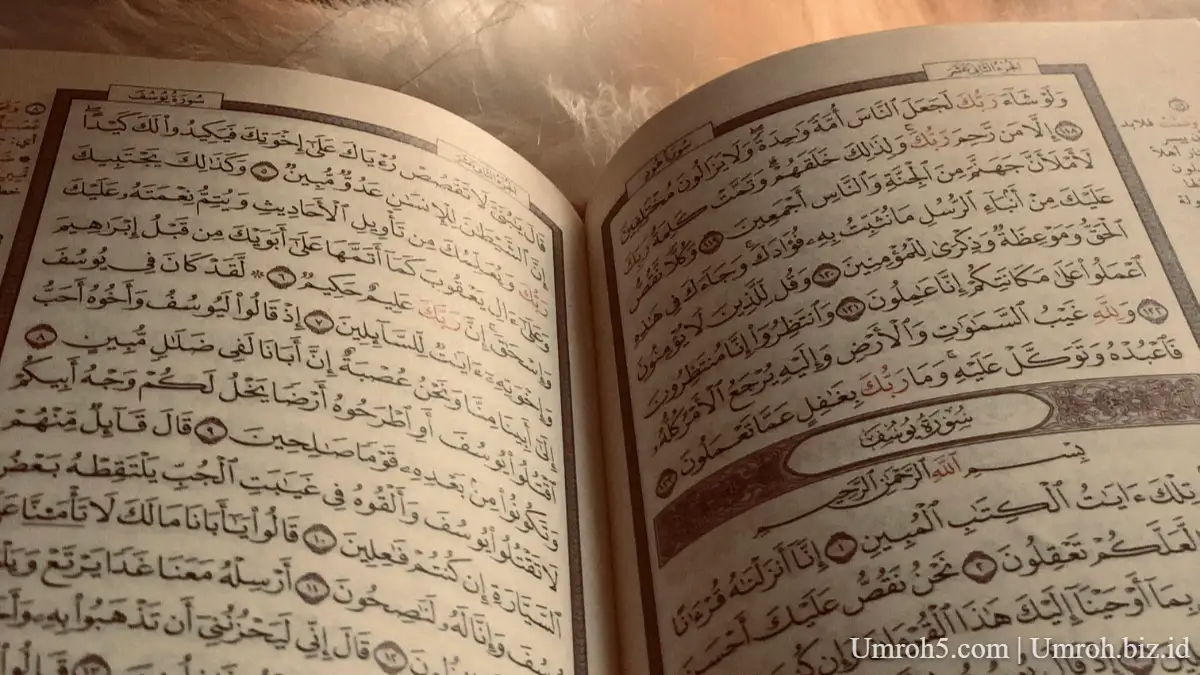 الجُزْءُ الثَّانِي عَشَرَ
سُورَةُ هُودٍ
وَلَوْ شَآءَ رَبُّكَ لَجَعَلَ ٱلنَّاسَ أُمَّةً وَٰحِدَةً ۖ وَلَا يَزَالُونَ مُخْتَلِفِينَ
١١٨ إِلَّا مَن رَّحِمَ رَبُّكَ ۚ وَلِذَٰلِكَ خَلَقَهُمْ ۗ وَتَمَّتْ كَلِمَةُ رَبِّكَ
لَأَمْلَأَنَّ جَهَنَّمَ مِنَ ٱلْجِنَّةِ وَٱلنَّاسِ أَجْمَعِينَ ١١٩ وَكُلًّا نَّقُصُّ
عَلَيْكَ مِنْ أَنۢبَآءِ ٱلرُّسُلِ مَا نُثَبِّتُ بِهِۦ فُؤَادَكَ ۚ وَجَآءَكَ فِى هَٰذِهِ
ٱلْحَقُّ وَمَوْعِظَةٌ وَذِكْرَىٰ لِلْمُؤْمِنِينَ ١٢٠ وَقُل لِّلَّذِينَ لَا يُؤْمِنُونَ
ٱعْمَلُوا۟ عَلَىٰ مَكَانَتِكُمْ إِنَّا عَٰمِلُونَ ١٢١ وَٱنتَظِرُوٓا۟ إِنَّا مُنتَظِرُونَ
١٢٢ وَلِلَّهِ غَيْبُ ٱلسَّمَٰوَٰتِ وَٱلْأَرْضِ وَإِلَيْهِ يُرْجَعُ ٱلْأَمْرُ كُلُّهُۥ
فَٱعْبُدْهُ وَتَوَكَّلْ عَلَيْهِ ۚ وَمَا رَبُّكَ بِغَٰفِلٍ عَمَّا تَعْمَلُونَ ١٢٣
سُورَةُ يُوسُفَ
بِسْمِ ٱللَّهِ ٱلرَّحْمَٰنِ ٱلرَّحِيمِ
تِلْكَ ءَايَٰتُ ٱلْكِتَٰبِ ٱلْمُبِينِ ١ إِنَّآ أَنزَلْنَٰهُ قُرْءَٰنًا
لَّعَلَّكُمْ تَعْقِلُونَ ٢ نَحْنُ نَقُصُّ عَلَيْكَ أَحْسَنَ
بِمَآ أَوْحَيْنَآ إِلَيْكَ هَٰذَا ٱلْقُرْءَانَ وَإِن كُنتَ
إِذْ قَالَ
الجُزْءُ الثَّانِي عَشَرَ
سُورَةُ يُوسُفَ
قَالَ يَٰبُنَىَّ لَا تَقْصُصْ رُءْيَاكَ عَلَىٰٓ إِخْوَتِكَ فَيَكِيدُوا۟ لَكَ كَيْدًا ۖ
إِنَّ ٱلشَّيْطَٰنَ لِلْإِنسَٰنِ عَدُوٌّ مُّبِينٌ ٥ وَكَذَٰلِكَ يَجْتَبِيكَ
رَبُّكَ وَيُعَلِّمُكَ مِن تَأْوِيلِ ٱلْأَحَادِيثِ وَيُتِمُّ نِعْمَتَهُۥ عَلَيْكَ
وَعَلَىٰٓ ءَالِ يَعْقُوبَ كَمَآ أَتَمَّهَا عَلَىٰٓ أَبَوَيْكَ مِن قَبْلُ إِبْرَٰهِيمَ
وَإِسْحَٰقَ ۚ إِنَّ رَبَّكَ عَلِيمٌ حَكِيمٌ ٦ ۞ لَّقَدْ كَانَ فِى يُوسُفَ
وَإِخْوَتِهِۦٓ ءَايَٰتٌ لِّلسَّآئِلِينَ ٧ إِذْ قَالُوا۟ لَيُوسُفُ وَأَخُوهُ أَحَبُّ
إِلَىٰٓ أَبِينَا مِنَّا وَنَحْنُ عُصْبَةٌ إِنَّ أَبَانَا لَفِى ضَلَٰلٍ مُّبِينٍ ٨
ٱقْتُلُوا۟ يُوسُفَ أَوِ ٱطْرَحُوهُ أَرْضًا يَخْلُ لَكُمْ وَجْهُ أَبِيكُمْ
وَتَكُونُوا۟ مِنۢ بَعْدِهِۦ قَوْمًا صَٰلِحِينَ ٩ قَالَ قَآئِلٌ مِّنْهُمْ
لَا تَقْتُلُوا۟ يُوسُفَ وَأَلْقُوهُ فِى غَيَٰبَتِ ٱلْجُبِّ يَلْتَقِطْهُ بَعْضُ
ٱلسَّيَّارَةِ إِن كُنتُمْ فَٰعِلِينَ ١٠ قَالُوا۟ يَٰٓأَبَانَا مَا لَكَ لَا تَأْمَ۫نَّا
يُوسُفَ وَإِنَّا لَهُۥ لَنَٰصِحُونَ ١١ أَرْسِلْهُ مَعَنَا غَدًا يَرْتَعْ وَيَلْعَبْ
١٢ قَالَ إِنِّى لَيَحْزُنُنِىٓ أَن تَذْهَبُوا۟ بِهِۦ
١٣ قَالُوا۟
Umroh5.com | Umroh.biz.id